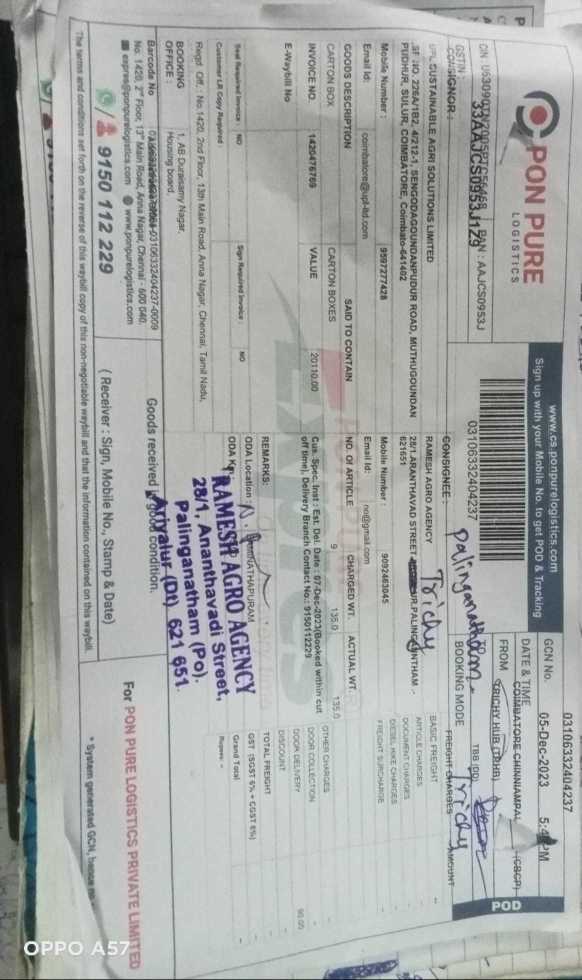 PON PURE
LOGISTICS
www.cs.ponpurelogistics.com
Sign up with your Mobile No. to get POD & Tracking
03106332404237
03106332404237
GCN No.
DATE & TIME
05-Dec-2023
PM
FROM
COIMBATORE CHINNIAMPAL
(CBCP)
TRICHY HUB (TRHB)
BOOKING MODE
TBB
POD
Trichy
PAN : AAJCS0953J
GSTIN :
33AAJCS0953J1Z9
CONSIGNOR :
UPL SUSTAINABLE AGRI SOLUTIONS LIMITED
SF.NO. 226A/1B2, 4/212-1, SENGODAGOUNDANPUDUR ROAD, MUTHUGOUNDAN
PUDHUR, SULUR, COIMBATORE, Coimbato-641402
Mobile Number :
9597277428
Email Id:
coimbatore@upl-ltd.com
CONSIGNEE:
RAMESH AGRO AGENCY
28/1.ARANTHAVAD STREET
621651
Palinganatham
Trichy
Mobile Number :
9092463045
Email Id:
no@gmail.com
GOODS DESCRIPTION
SAID TO CONTAIN
NO. Of ARTICLE
CHARGED WT.
ACTUAL WT.
CARTON BOX
CARTON BOXES
9
135.0
135.0
INVOICE NO.
1425476769
VALUE
20110.00
Cus. Spec. Inst : Est. Del. Date : 07-Dec-2023(Booked within cut
off time), Delivery Branch Contact No.: 9150112229
E-Waybill No
FREIGHT CHARGES
AMOUNT
BASIC FREIGHT
ARTICLE CHARGES
DOCUMENT CHARGES
DIESEL HIKE CHARGES
FREIGHT SURCHARGE
OTHER CHARGES
DOOR COLLECTION
DOOR DELIVERY
90.00
DISCOUNT
TOTAL FREIGHT
GST (SGST 6% + CGST 6%)
Grand Total
Rupees: -
Seal Required Invoice : NO
Sign Required Invoice : NO
Customer LR Copy Required :
REMARKS:
ODA Location :
Regd. Off. : No.1420, 2nd Floor, 13th Main Road, Anna Nagar, Chennai, Tamil Nadu,
BOOKING
OFFICE :
1, AB Duraisamy Nagar,
Housing board,
RAMESH AGRO AGENCY
28/1. Ananthavadi Street,
Palinganatham (Po).
Ariyalur (Dt) 621 651.
Barcode No.
03106332404237-0009
No. 1420, 2nd Floor, 13th Main Road, Anna Nagar, Chennai - 600 040.
expres@ponpurelogistics.com www.ponpurelogistics.com
9150 112 229
Goods received in good condition.
( Receiver : Sign, Mobile No., Stamp & Date)
For PON PURE LOGISTICS PRIVATE LIMITED
* System generated GCN, hence no
The terms and conditions set forth on the reverse of this waybill copy of this non-negotiable waybill and that the information contained on this waybill.
OPPO A57